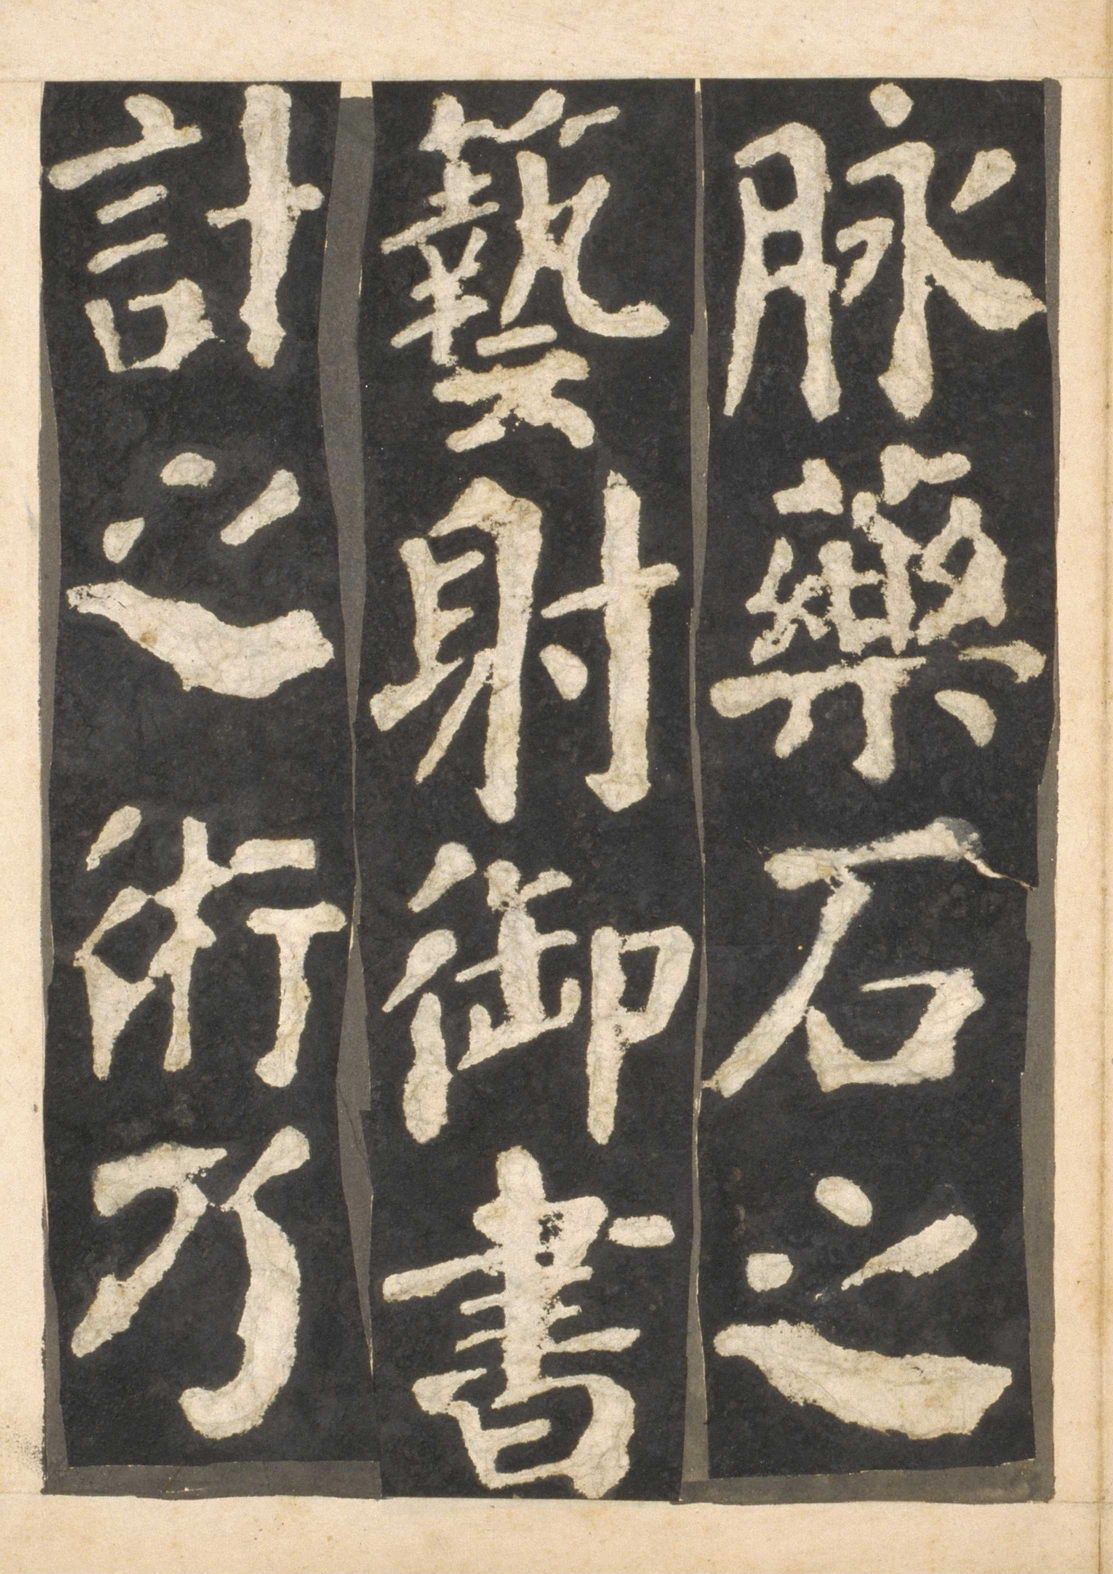 脉藥石之
藝射御書
計之術乃